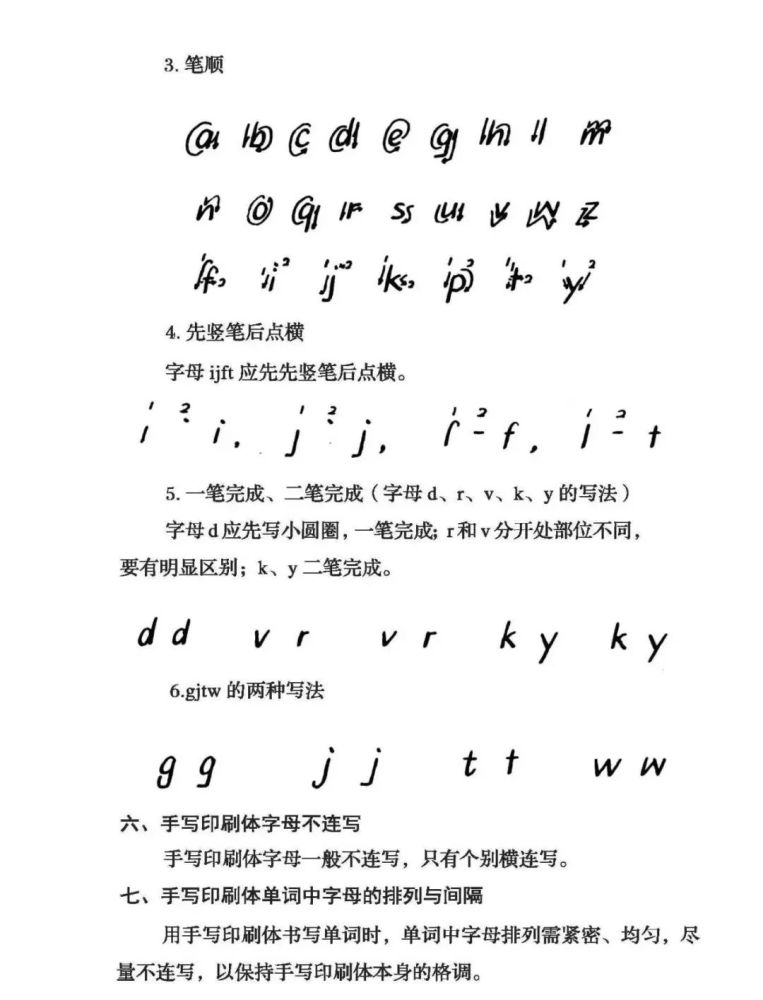 3. 笔顺
a b c d e g h l m
n o q r s u v w z
1f2 1i2 1j2 1k2 1p2 1t2 1y2
4. 先竖笔后点横
字母 ijft 应先先竖笔后点横。
1 2 i, 1 2 j, 1 2 f, 1 2 t
5. 一笔完成、二笔完成（字母 d、r、v、k、y 的写法）
字母 d 应先写小圆圈，一笔完成；r 和 v 分开处部位不同，
要有明显区别；k、y 二笔完成。
d d v r v r k y k y
6.gjtw 的两种写法
g g j j t t w w
六、手写印刷体字母不连写
手写印刷体字母一般不连写，只有个别横连写。
七、手写印刷体单词中字母的排列与间隔
用手写印刷体书写单词时，单词中字母排列需紧密、均匀，尽
量不连写，以保持手写印刷体本身的格调。